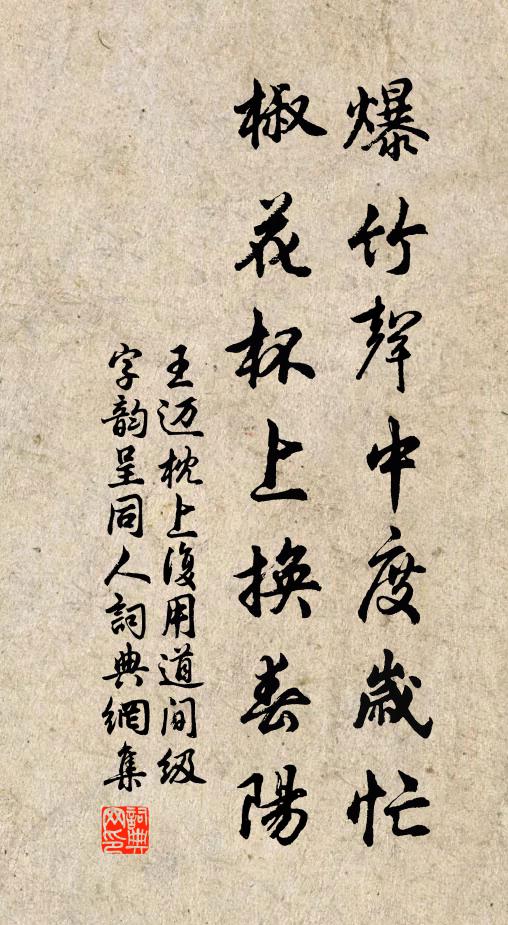 爆竹聲中度歲忙
椒花杯上換春陽
王迈枕上復用道间级
字韵呈同人詞典網集
詞典网印